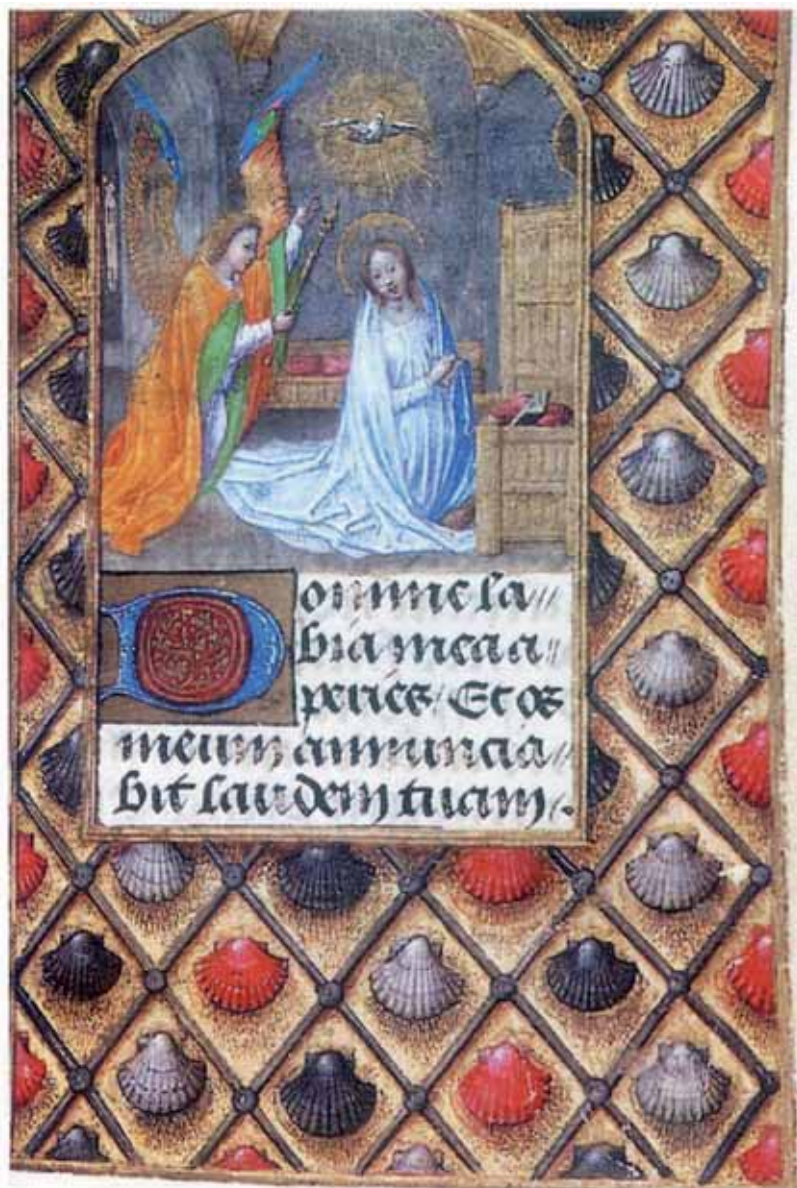 Domine la
bia mea a
peries Et os
meum annuncia
bit laudem tuam.